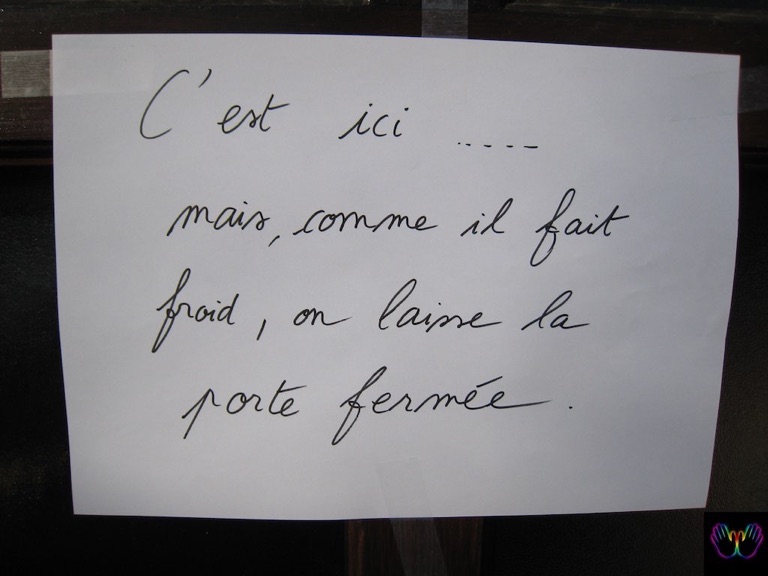 C'est ici .....
mais, comme il fait
froid, on laisse la
porte fermée.